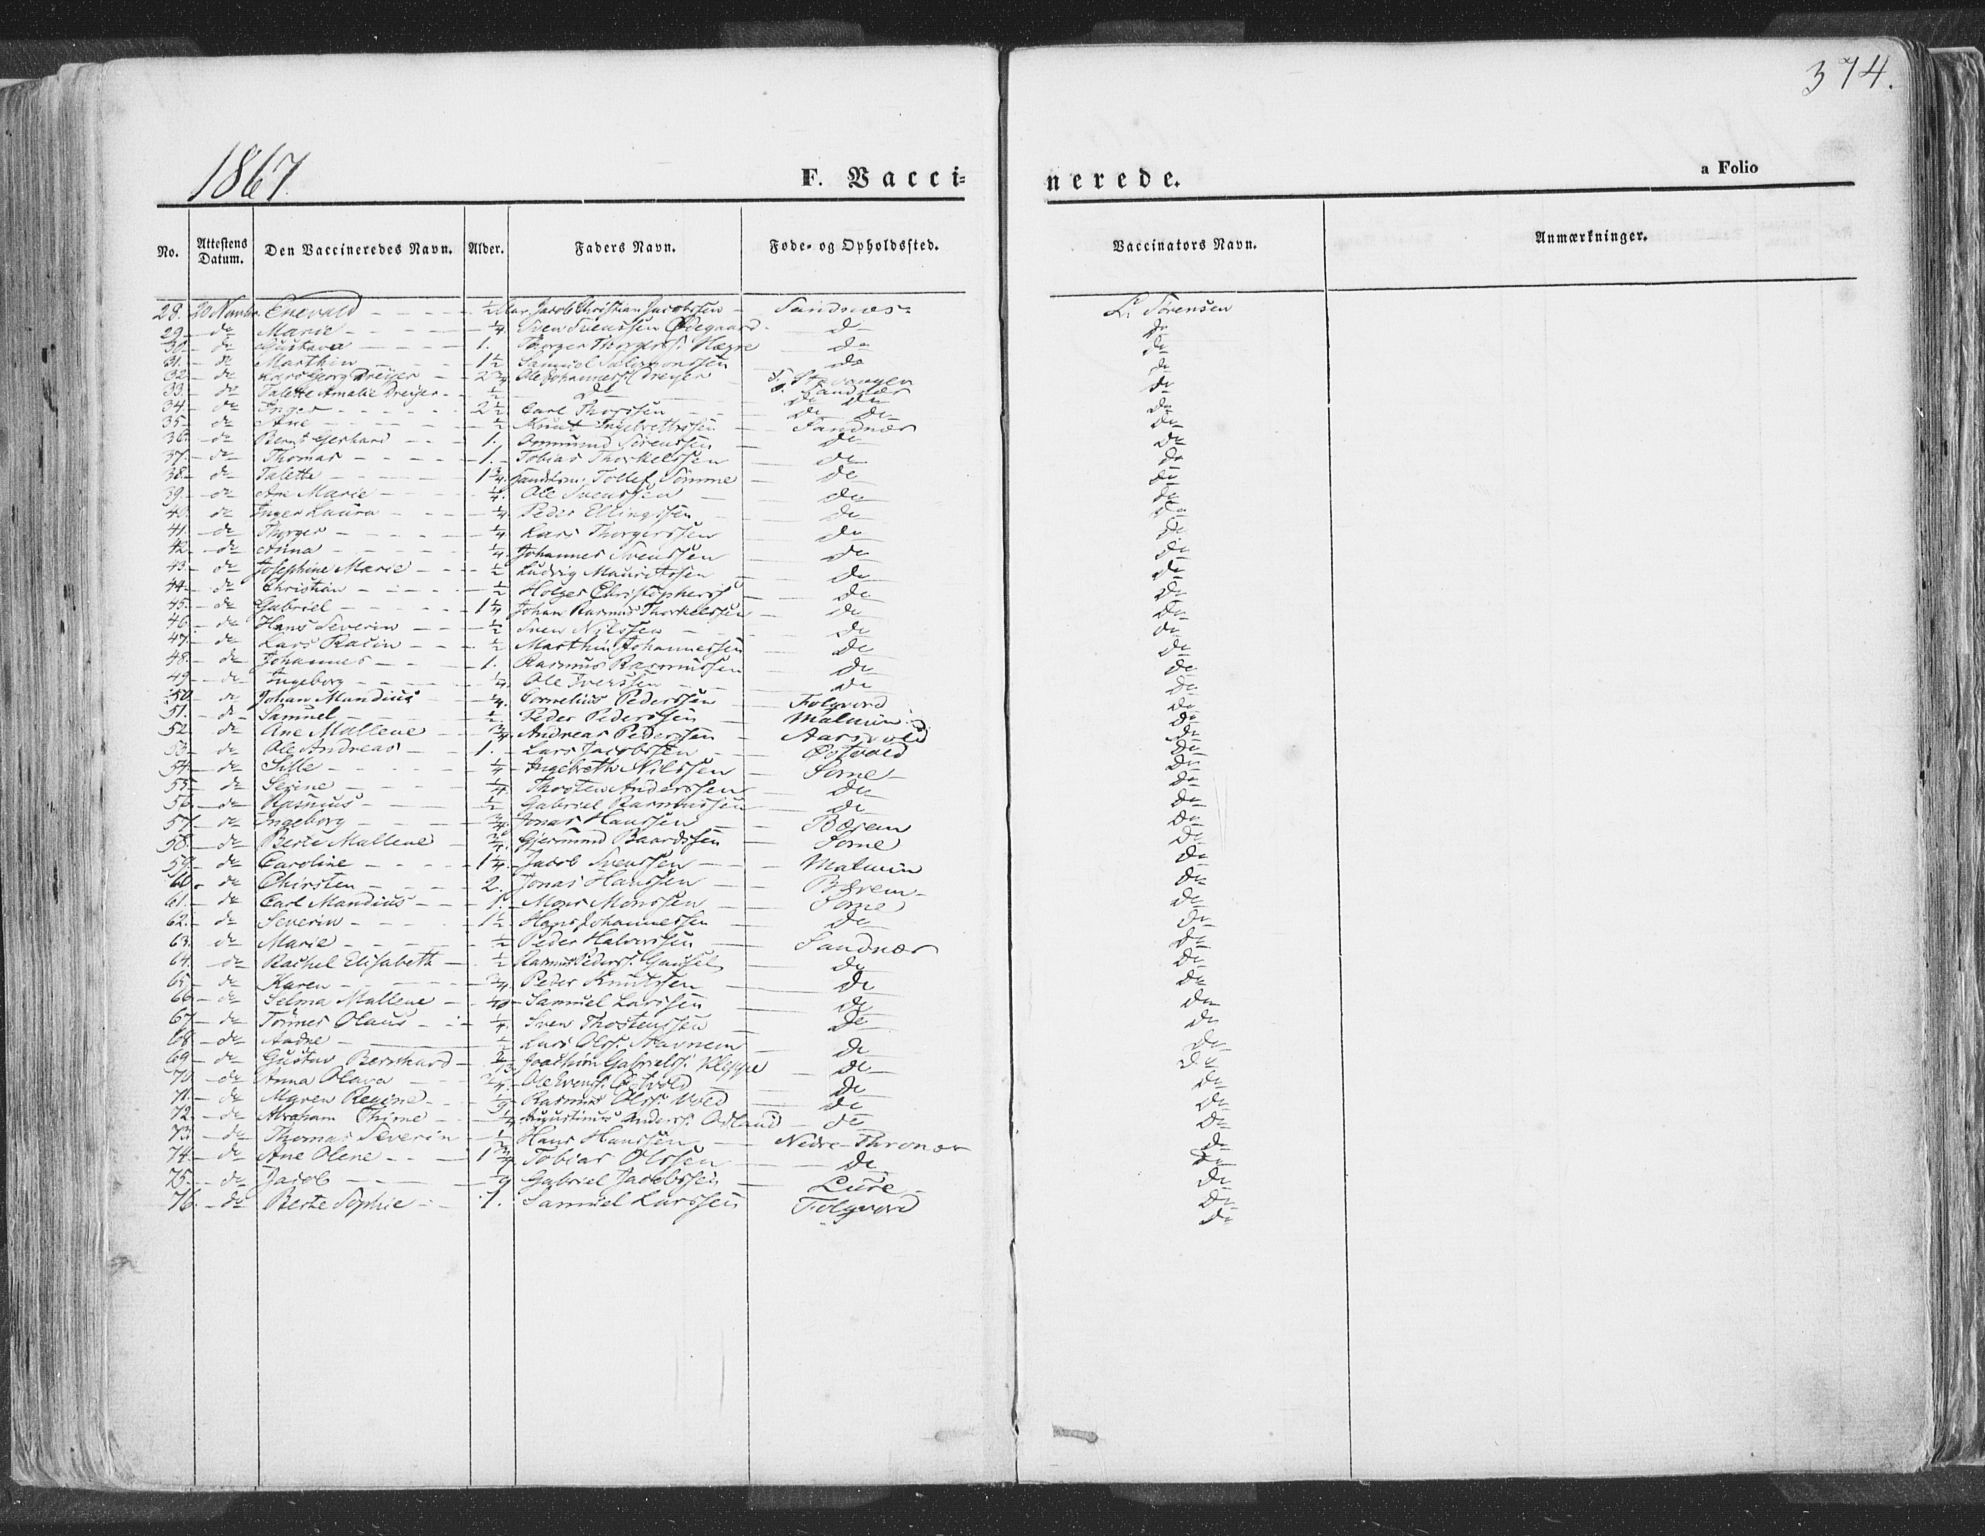 374.
1867.
F. Vacci-nerede.
a Folio
No. Attestens Datum. Den Vaccineredes Navn. Alder. Faders Navn. Føde- og Opholdssted. Vaccinators Navn. Anmærkninger.
28. 20 Novbr. Enevald ½ Jacob Christian Jacobssen Sandnæs L. Sørensen
29 do Marie ¼ Sven Svenssen Ødegaard do do
30 do Gustava 1. Thorger Thorgers. do do
31. do Marthin 1½ Samuel Salomonssen do do
32 do Lars Georg Dreyer 2¾ Ole Johannessen Dreyer Stavanger do
33. do Talette Amalie Dreyer ½ do Sandnæs do
34. do Inger 2½ Carl Thorssen do do do
35 do Ane ½ Knut Ingebrethssen Sandnæs do
36 do Bernt Gerhard 1. Ommund Sørenssen do do
37. do Thomas 1. Tobias Thorkelssen do do
38. do Talette 1¾ Tollef Somme do do
39. do Ane Marie ¼ Ole Svenssen do do
40. do Inger Laura ¼ Peder Ellingssen do do
41. do Thorger ¼ Lars Thorgerssen do do
42. do Anna ¼ Johannes Svenssen do do
43. do Josephine Marie ½ Ludvig Mauritssen do do
44. do Christian ½ Holger Christophers. do do
45. do Gabriel 1¼ Johan Rasmus Thorkelssen do do
46. do Hans Severin ½ Sven Nilssen do do
47. do Lars Rasin ½ Marthin Johannessen do do
48. do Johannes 1. Rasmus Rasmussen do do
49. do Ingeborg ¼ Ole Iverssen do do
50. do Johan Mandius ¼ Cornelius Pederssen Folgvord do
51. do Samuel ½ Peder Pederssen Malmin do
52. do Ane Mallene ¾ Andreas Pederssen Aarsvold do
53. do Ole Andreas 1. Lars Jacobssen Østvold do
54. do Sille ¼ Ingebreth Nilssen Some do
55. do Serine ¼ Thorsten Anderssen do do
56. do Rasmus ½ Gabriel Rasmussen do do
57. do Ingeborg ¾ Jonas Hanssen Bærem do
58. do Berte Mallene ¾ Gjermund Baardssen Some do
59. do Caroline 1¼ Jacob Svenssen Malmin do
60. do Chirsten 2. Jonas Hanssen Bærem do
61. do Carl Mandius 1. Mons Monssen Some do
62. do Severin 1½ Hans Johannessen do do
63. do Marie ½ Peder Halvorssen Sandnæs do
64. do Rachel Elisabeth ½ Rasmus Peders. Gausel do do
65. do Karen ¾ Peder Knutssen do do
66. do Selma Mallene Samuel Larssen do do
67. do Tønnes Olaus ¼ Sven Thorstenssen do do
68. do Aadne ½ Lars Ols. Stavnem do do
69. do Gustav Bernhard Joachim Gabriels. Kleppe do do
70. do Anna Olava ¾ Ole Evens. Østvold do do
71. do Maren Regine Rasmus Ols. Vold do do
72. do Abraham Thime ¼ Augustinus Anders. Osland do do
73. do Thomas Severin ½ Hans Hanssen Nedre-Thronæs do
74. do Ane Olene 1¾ Tobias Olssen do do
75. do Jacob Gabriel Jacobssen Lure do
76. do Berte Sophie 1. Samuel Larssen Folgvord do